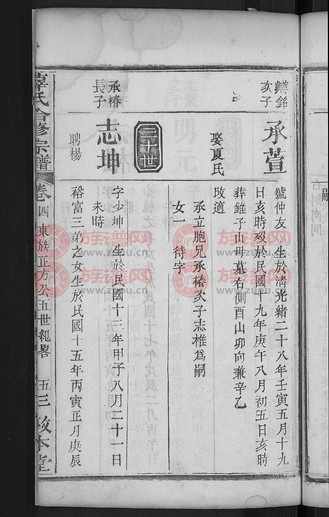 轉銘
次子
承萱
號仲友 生於清光緒二十八年壬寅五月十九
日亥時歿於民國十九年庚午八月初五日亥時
葬雞子山母墓右側酉山卯向兼辛乙
娶夏氏
改適
承立胞兄承椿次子志椎爲嗣
女一 待字
三十世
承椿
長子
志坤
字少坤 生於民國十三年甲子八月二十一日
未時
聘楊
裕富三弟之女生於民國十五年丙寅正月庚辰
氏合修宗譜
卷四 東族正方公五世親畧
五三 敘本堂